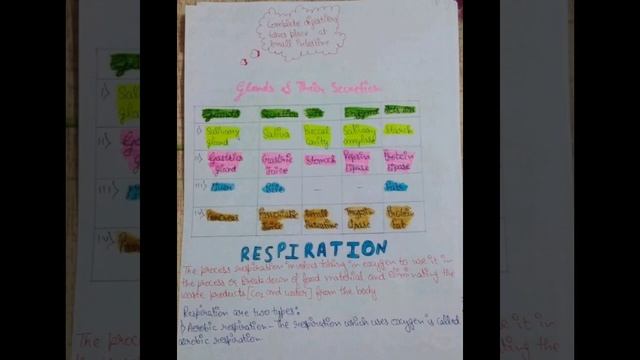 Complete digestion
takes place at
small intestine
Glands & Their Secretion
Glands Secretion Site Enzyme
i) Salivary gland Saliva Buccal cavity Salivary amylase Starch
ii) Gastric gland Gastric Juice Stomach Pepsin lipase Protein lipase
iii) Liver Bile - -
iv) Pancreas Pancreatic Juice Small Intestine Trypsin lipase Protein Fat
RESPIRATION
The process respiration involves taking in oxygen to use it in
the process of Break down of food material and eliminating the
waste products [CO2 and water] from the body
Respiration are two types:
i) Aerobic respiration - The respiration which uses oxygen is called
aerobic respiration.